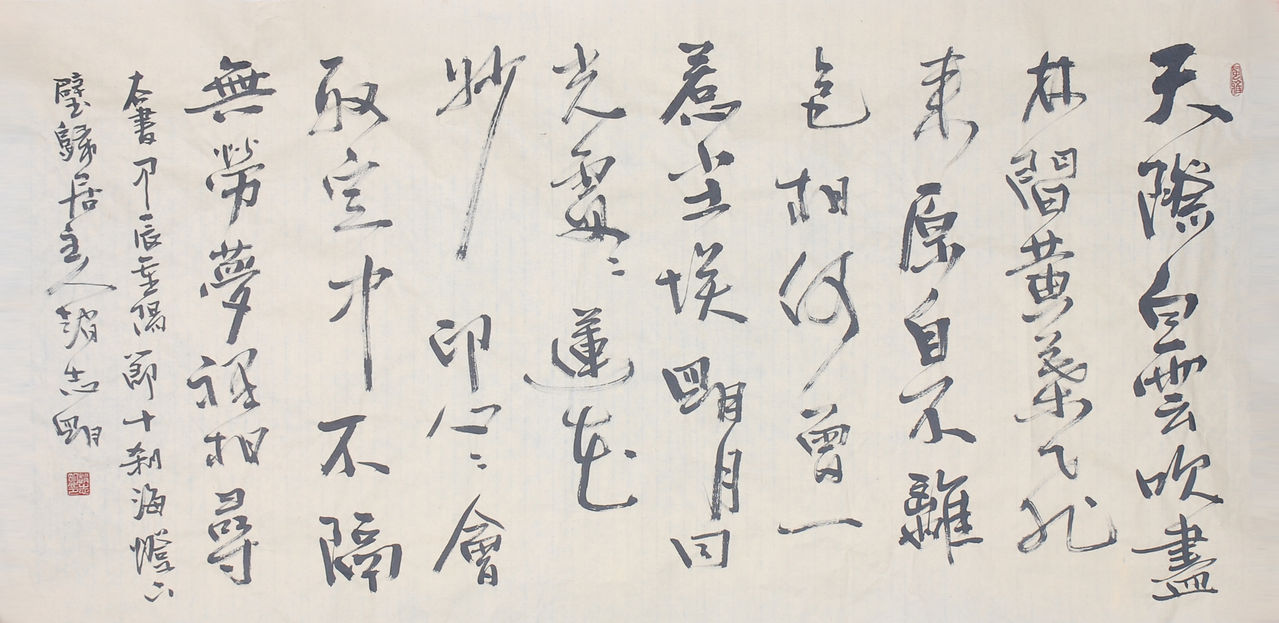 天際白雲吹盡
林間黃葉飛
來原自不離
色相何曾一
惹尘埃明月囘
光處〻蓮花
妙印心〻會
取空中不隔
無勞夢裡相尋
右書甲辰重陽節十刹海燈下
璧歸居主人趙志明